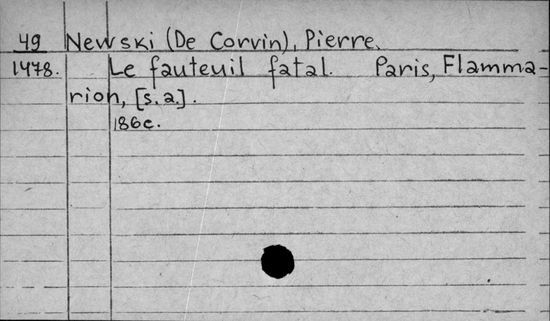 49 Newski (De Corvin), Pierre.
1478. Le fauteuil fatal. Paris, Flamma-
rion, [s.a.].
186c.